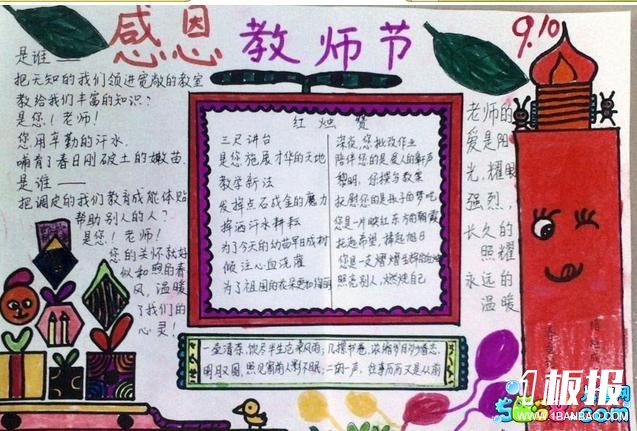 感恩教师节
9.10
是谁——
把无知的我们领进宽敞的教室
教给我们丰富的知识？
是您！老师！
您用辛勤的汗水，
哺育了春日刚破土的嫩苗。
是谁——
把调皮的我们教育成能体贴
帮助别人的人？
是您！老师！
您的关怀就好
似和煦的春
风，温暖
了我们的
心灵！
红烛赞
三尺讲台
是您施展才华的天地
教学新法
发挥点石成金的魔力
挥洒汗水耕耘
为了今天的幼苗早日成材
倾注心血浇灌
为了祖国的花朵
深夜，您批改作业
陪伴您的是
黎明，您撰写教案
托起希望，捧起旭日
照亮别人，燃烧自己
老师的
爱是阳
光，耀眼
强烈，
长久的
照耀
永远的
温暖
一壶清茶，饮尽半生
明月又圆，照见窗前人影不眠；二胡一声，往事历历又是从前
1板报
WWW.1BANBAO.COM